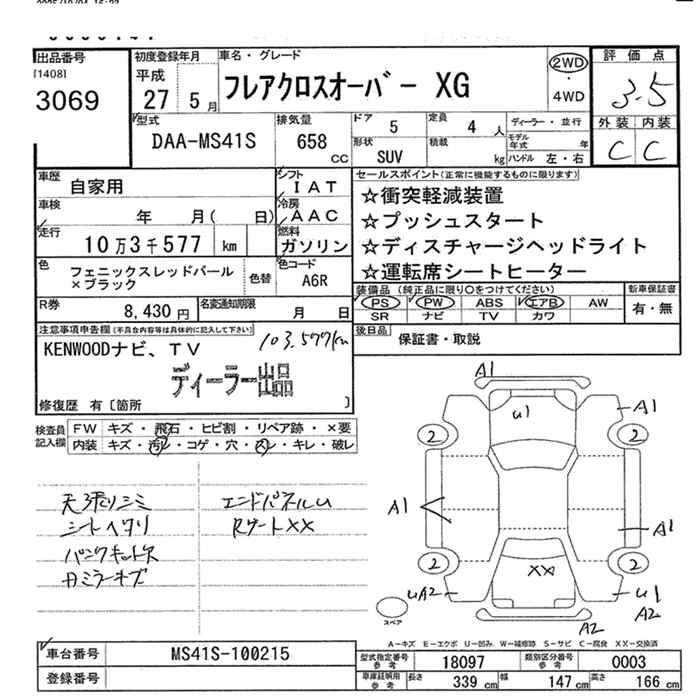 出品番号
[1408]
3069
初度登録年月
平成
27 5月
車名・グレード
フレアクロスオーバー XG
2WD
・
4WD
評価点
3.5
外装 内装
C C
型式
DAA-MS41S
排気量
658
CC
ドア
5
定員
4 人
形状
SUV
積載
kg
ディーラー・並行
モデル年式 年
ハンドル 左・右
車歴
自家用
車検
年 月( 日)
走行
10万3千577 km
シフト
I A T
冷房
A A C
燃料
ガソリン
色
フェニックスレッドパール
×ブラック
色替
色コード
A6R
R券
8,430 円
名変通知期限
月 日
セールスポイント(正常に機能するものに限ります)
☆衝突軽減装置
☆プッシュスタート
☆ディスチャージヘッドライト
☆運転席シートヒーター
装備品(純正品に限り○をつけてください)
PS PW ABS エアB AW
SR ナビ TV カワ
新車保証書
有・無
後日品
保証書・取説
注意事項申告欄(不具合内容等は具体的に記入して下さい)
103,577km
KENWOODナビ、TV
ディーラー出品
修復歴 有〔箇所 〕
検査員
記入欄
FW キズ・飛石・ヒビ割・リペア跡・×要
内装 キズ・汚レ・コゲ・穴・スレ・キレ・破レ
天張りシミ
シートヘタリ
パンクキット欠
エンドパネルU
RゲートXX
A1
U1
A1
2
2
A1
A1
2
2
XX
UA2
U1
A2
A2
スペア
A－キズ E－エクボ U－凹み W－補修跡 S－サビ C－腐食 XX－交換済
車台番号
MS41S-100215
登録番号
型式指定番号
参考
18097
類別区分番号
参考
0003
車庫証明用
参考
長さ
339 cm
幅
147 cm
高さ
166 cm